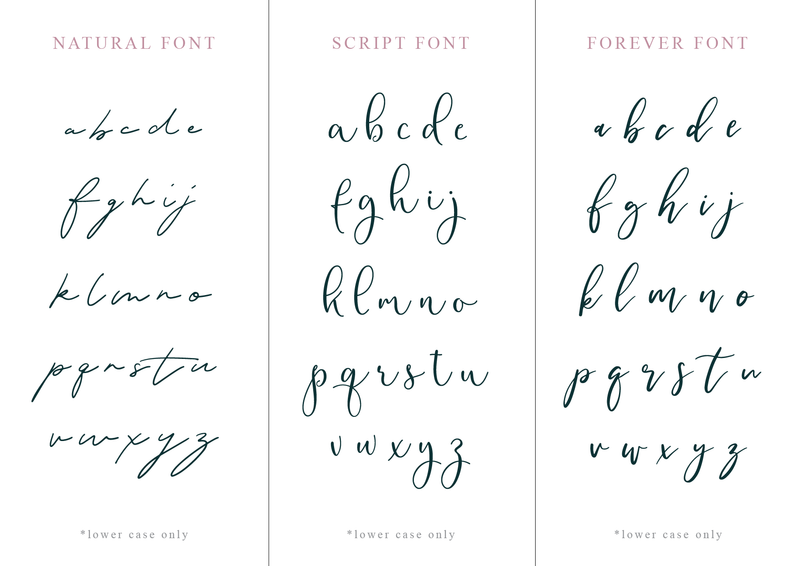 NATURAL FONT
a b c d e
f g h i j
k l m n o
p q r s t u
v w x y z
*lower case only
SCRIPT FONT
a b c d e
f g h i j
k l m n o
p q r s t u
v w x y z
*lower case only
FOREVER FONT
a b c d e
f g h i j
k l m n o
p q r s t u
v w x y z
*lower case only